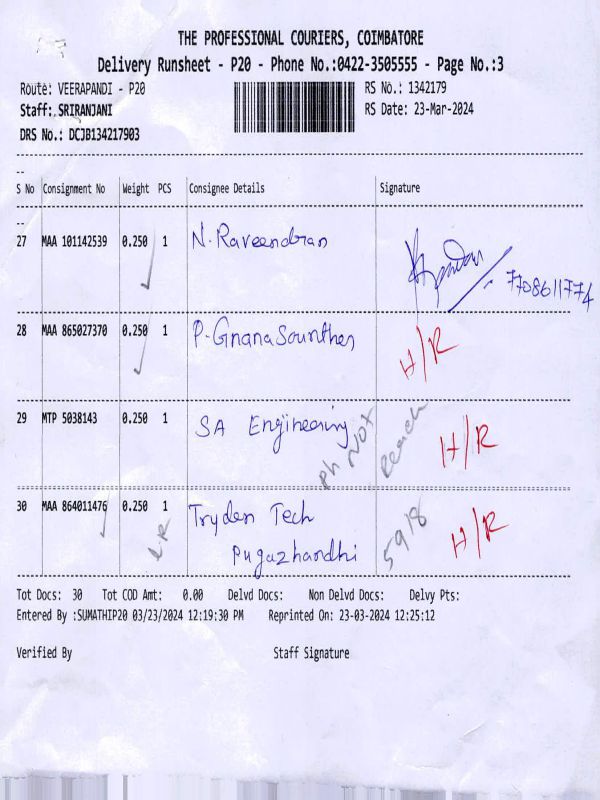 THE PROFESSIONAL COURIERS, COIMBATORE
Delivery Runsheet - P20 - Phone No.:0422-3505555 - Page No.:3
Route: VEERAPANDI - P20 RS No.: 1342179
Staff: SRIRANJANI RS Date: 23-Mar-2024
DRS No.: DCJB134217903
S No Consignment No Weight PCS Consignee Details Signature
27 MAA 101142539 0.250 1 N. Raveendran
7708611774
28 MAA 865027370 0.250 1 P. Gnana Sounther H/R
29 MTP 5038143 0.250 1 SA Engineering Ph Not Reach H/R
30 MAA 864011476 0.250 1 Tryden Tech 59/8 H/R
LR Pugazhandhi
Tot Docs: 30 Tot COD Amt: 0.00 Delvd Docs: Non Delvd Docs: Delvy Pts:
Entered By :SUMATHIP20 03/23/2024 12:19:30 PM Reprinted On: 23-03-2024 12:25:12
Verified By Staff Signature